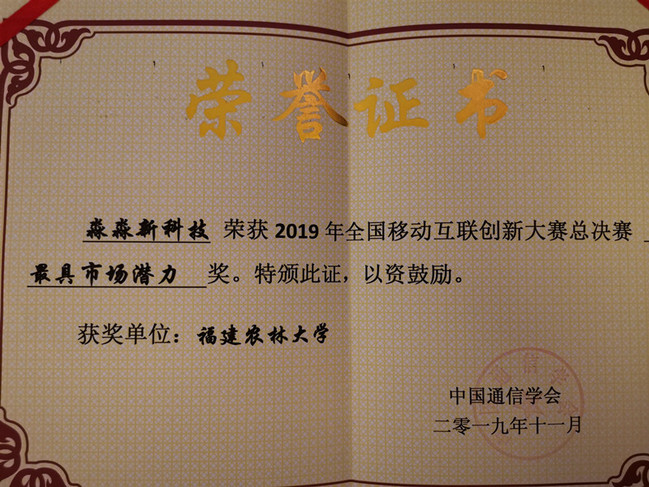 荣誉证书
淼淼新科技 荣获 2019 年全国移动互联创新大赛总决赛
最具市场潜力 奖。特颁此证，以资鼓励。
获奖单位：福建农林大学
中国通信学会
二零一九年十一月